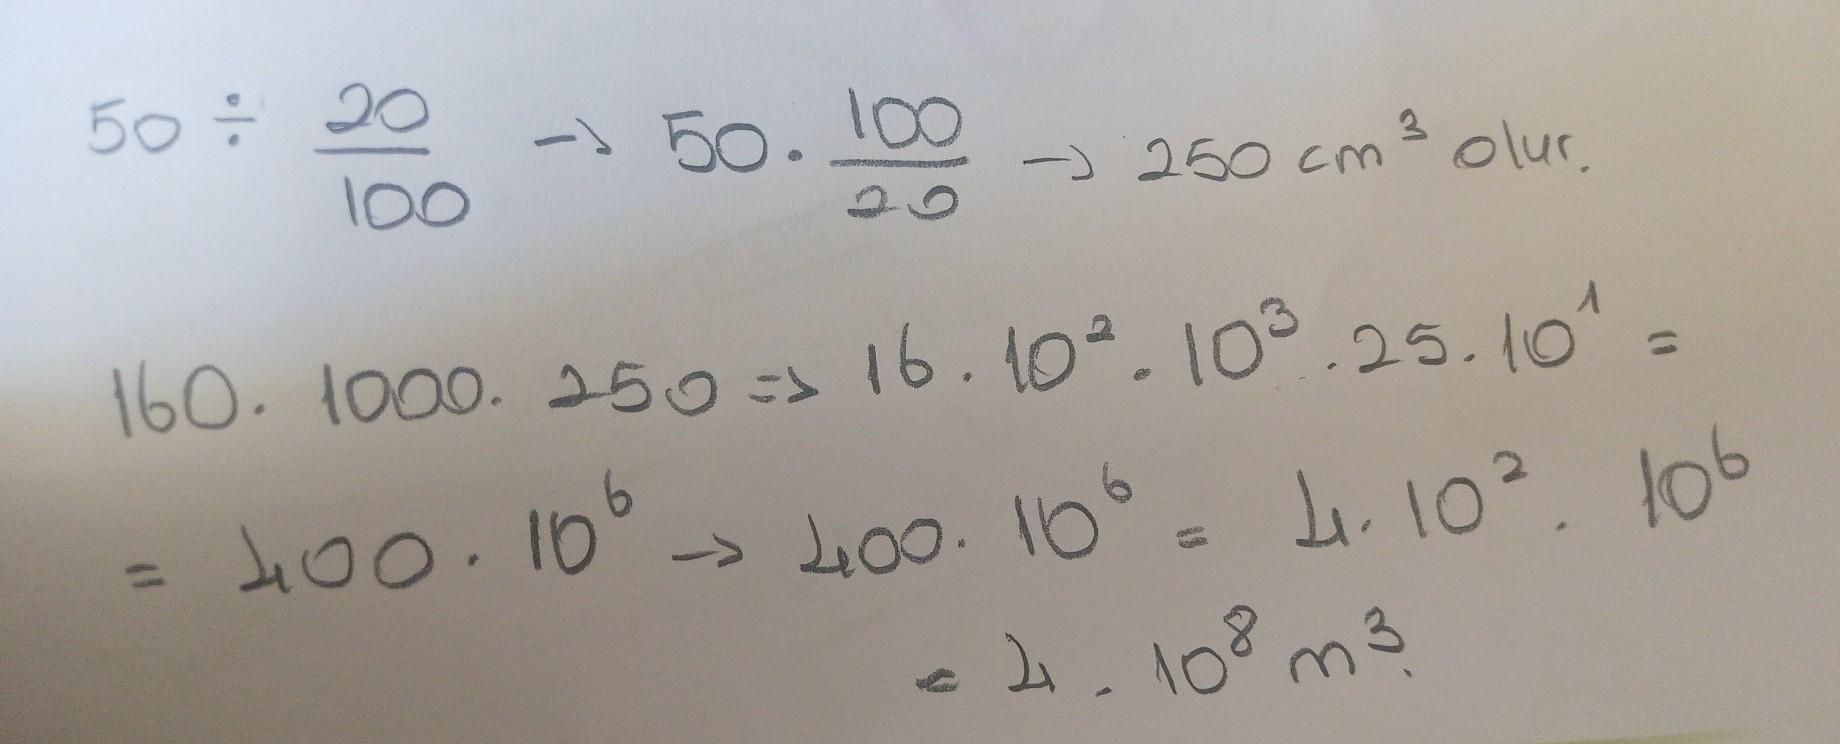 50 ÷ 20/100 → 50 . 100/20 → 250 cm³ olur.
160. 1000. 250 => 16 . 10² . 10³ . 25 . 10¹ =
= 400 . 10⁶ → 400 . 10⁶ = 4 . 10² . 10⁶
= 4 . 10⁸ m³.